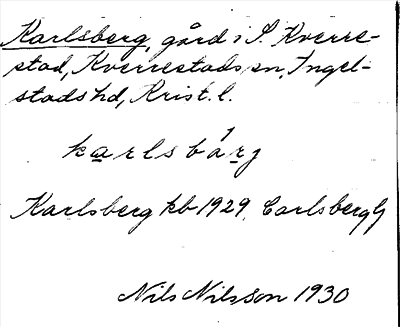 Karlsberg, gård i S. Kverre-
stad, Kverrestads sn, Ingel-
stads hd, Krist. l.
karlsbárj
Karlsberg kb 1929, Carlsberg G
Nils Nilsson 1930